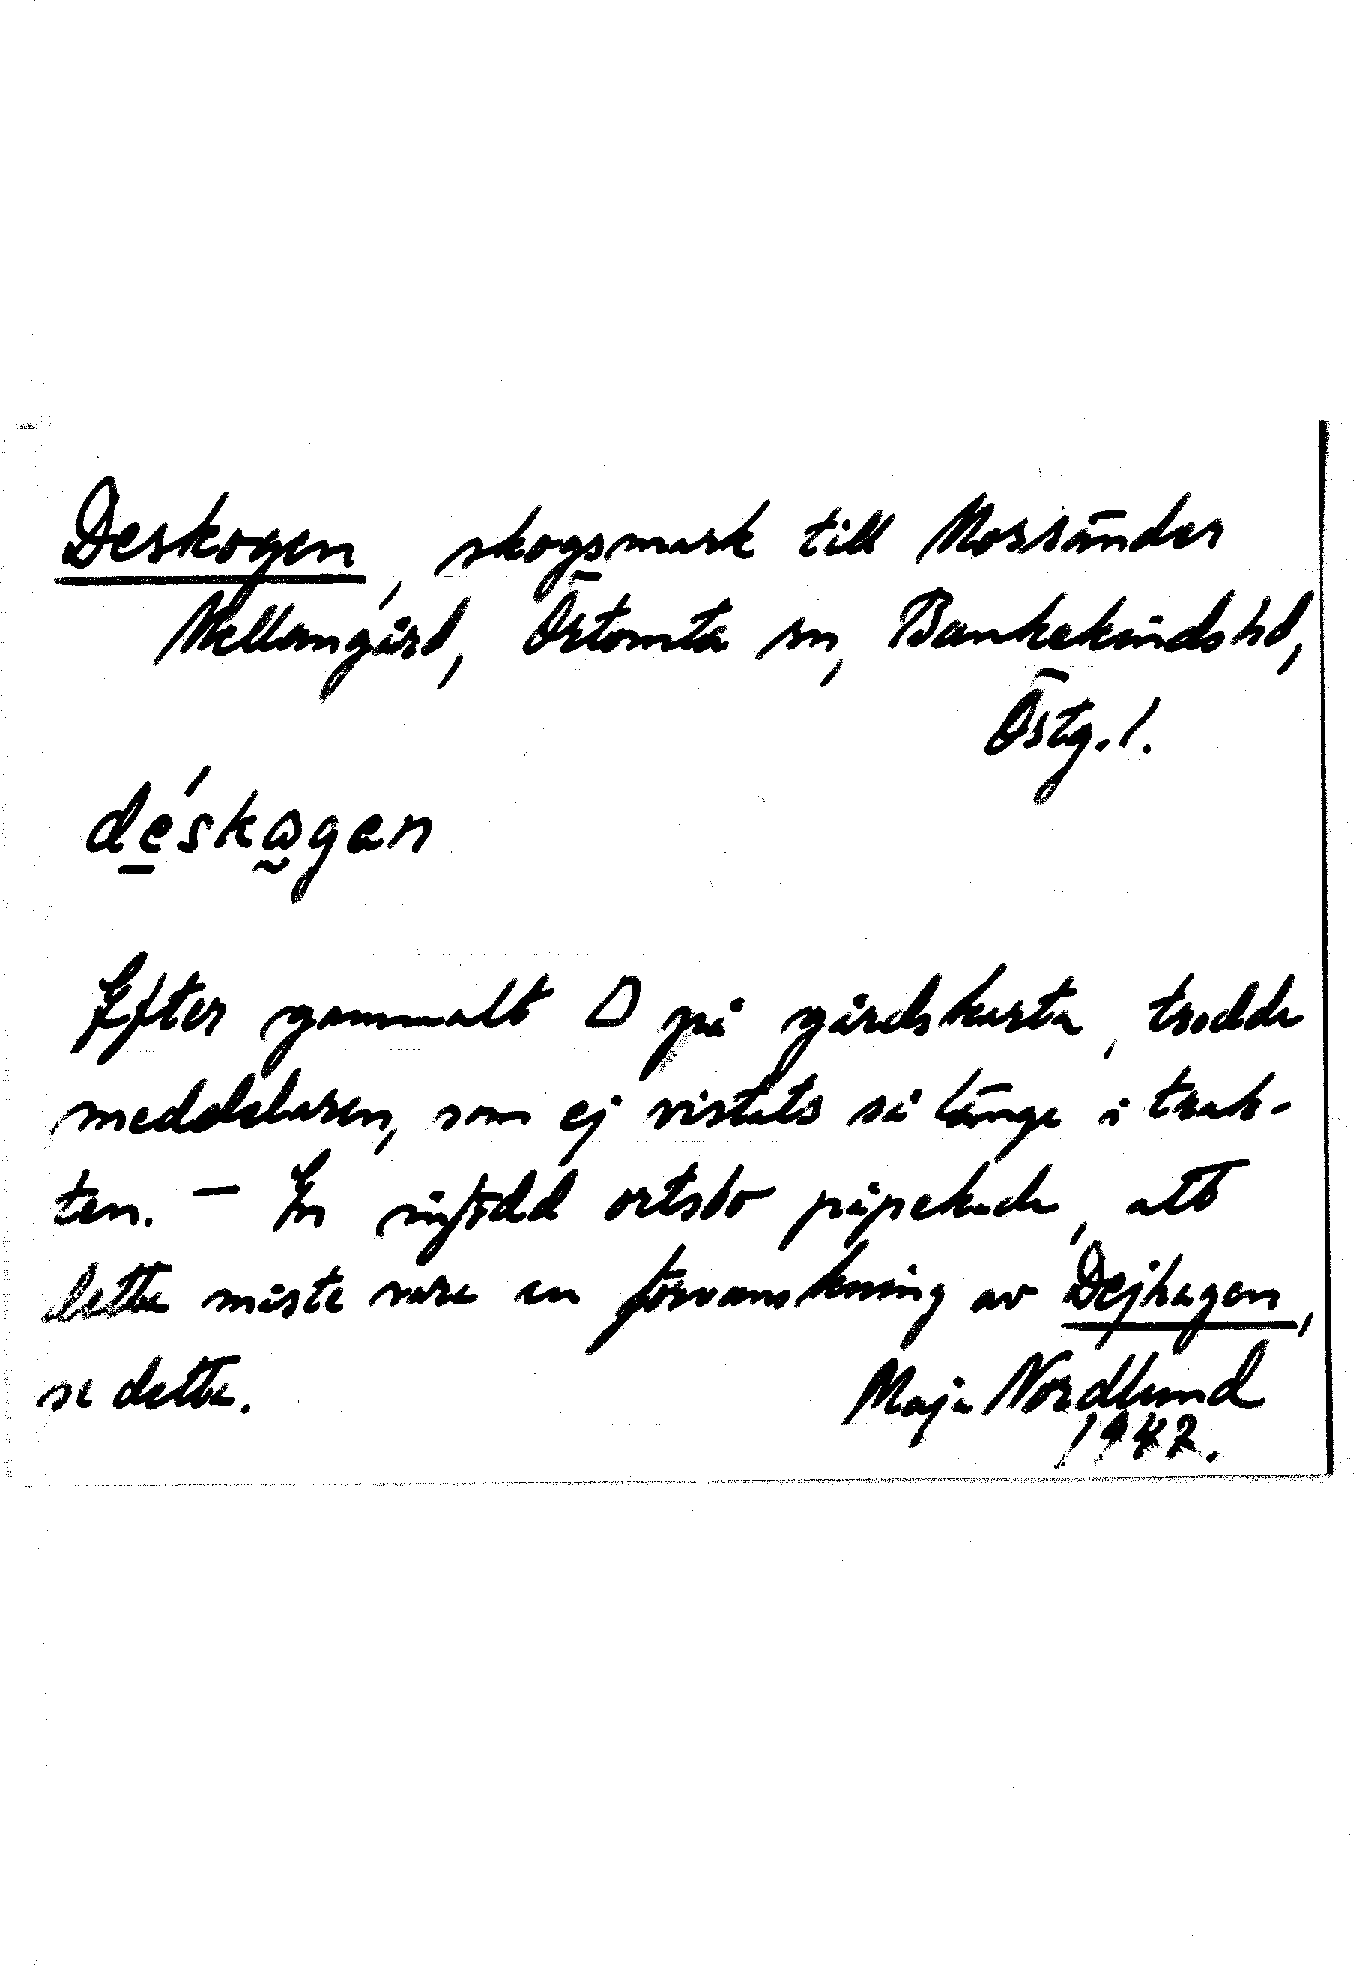 Deskogen, skogsmark till Morränder
Mellangård, Örtomta sn, Bankekinds hd,
Östg. l.
de̲´skωgen
Efter gammalt D på gårdskarta, trodde
meddelaren, som ej vistats så länge i trak-
ten. – En infödd ortsbo påpekade, att
detta måste vara en förvanskning av Dejhagen,
se detta. Maja Nordlund
1947.